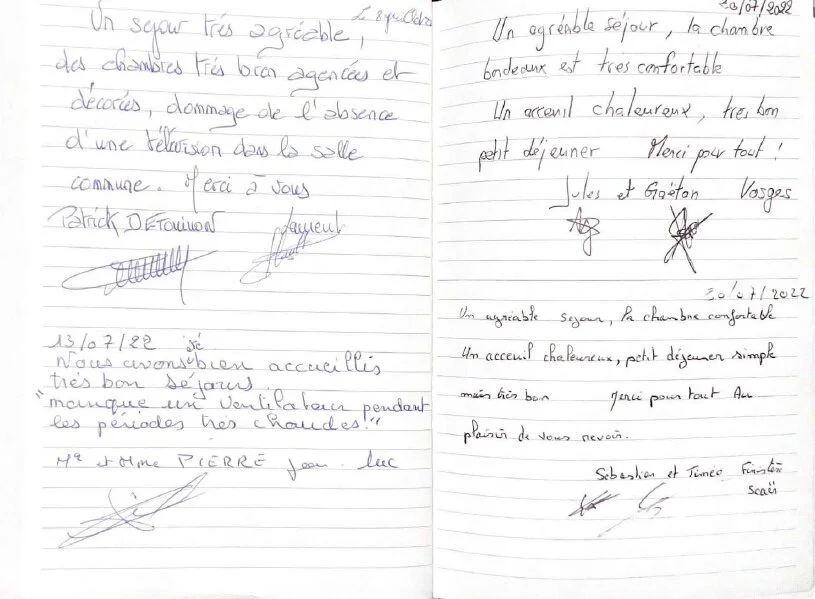 Un sejour très agréable,
des chambres très bien agencées et
décorées, dommage de l'absence
d'une télévision dans la salle
commune. Merci à vous
Patrick DETOUILLON Laurent
13/07/22
Nous avons été bien accueillis
très bon séjours.
"manque un ventilateur pendant
les périodes très chaudes!"
Mr et Mme PIERRE Jean-Luc
20/07/2022
Un agréable séjour, la chambre
bordeaux est tres confortable
Un acceuil chaleureux, tres bon
petit déjeuner Merci pour tout !
Jules et Gaéton Vosges
20/07/2022
Un agréable sejour, la chambre confortable
Un acceuil chaleureux, petit déjeuner simple
mais très bon Merci pour tout Au
plaisir de vous revoir.
Sébastien et Timéo Finistère
Scaër